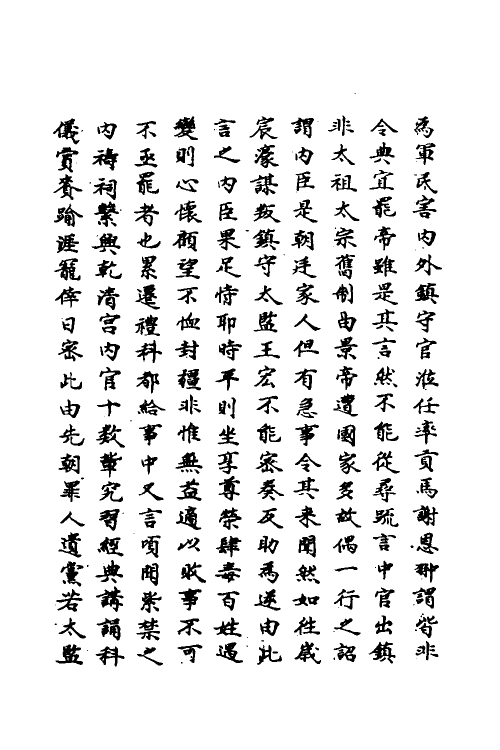 為軍民害内外鎮守官涖任率貢馬謝恩卿謂皆非
令典宜罷帝雖是其言然不能從尋疏言中官出鎮
非太祖太宗舊制由景帝遭國家多故偶一行之詔
謂内臣是朝廷家人但有急事令其来聞然如徃嵗
宸濠謀叛鎮守太監王宏不能密奏反助為逆由此
言之内臣果足恃耶時平則坐享尊榮肆毒百姓遇
變則心懷顧望不恤封疆非惟無益適以敗事不可
不亟罷者也累遷禮科都給事中又言頃聞紫禁之
内禱祠繁興乾清宫内官十數軰究習經典講誦科
儀賞賚踰涯寵倖日密此由先朝罪人遺黨若太監